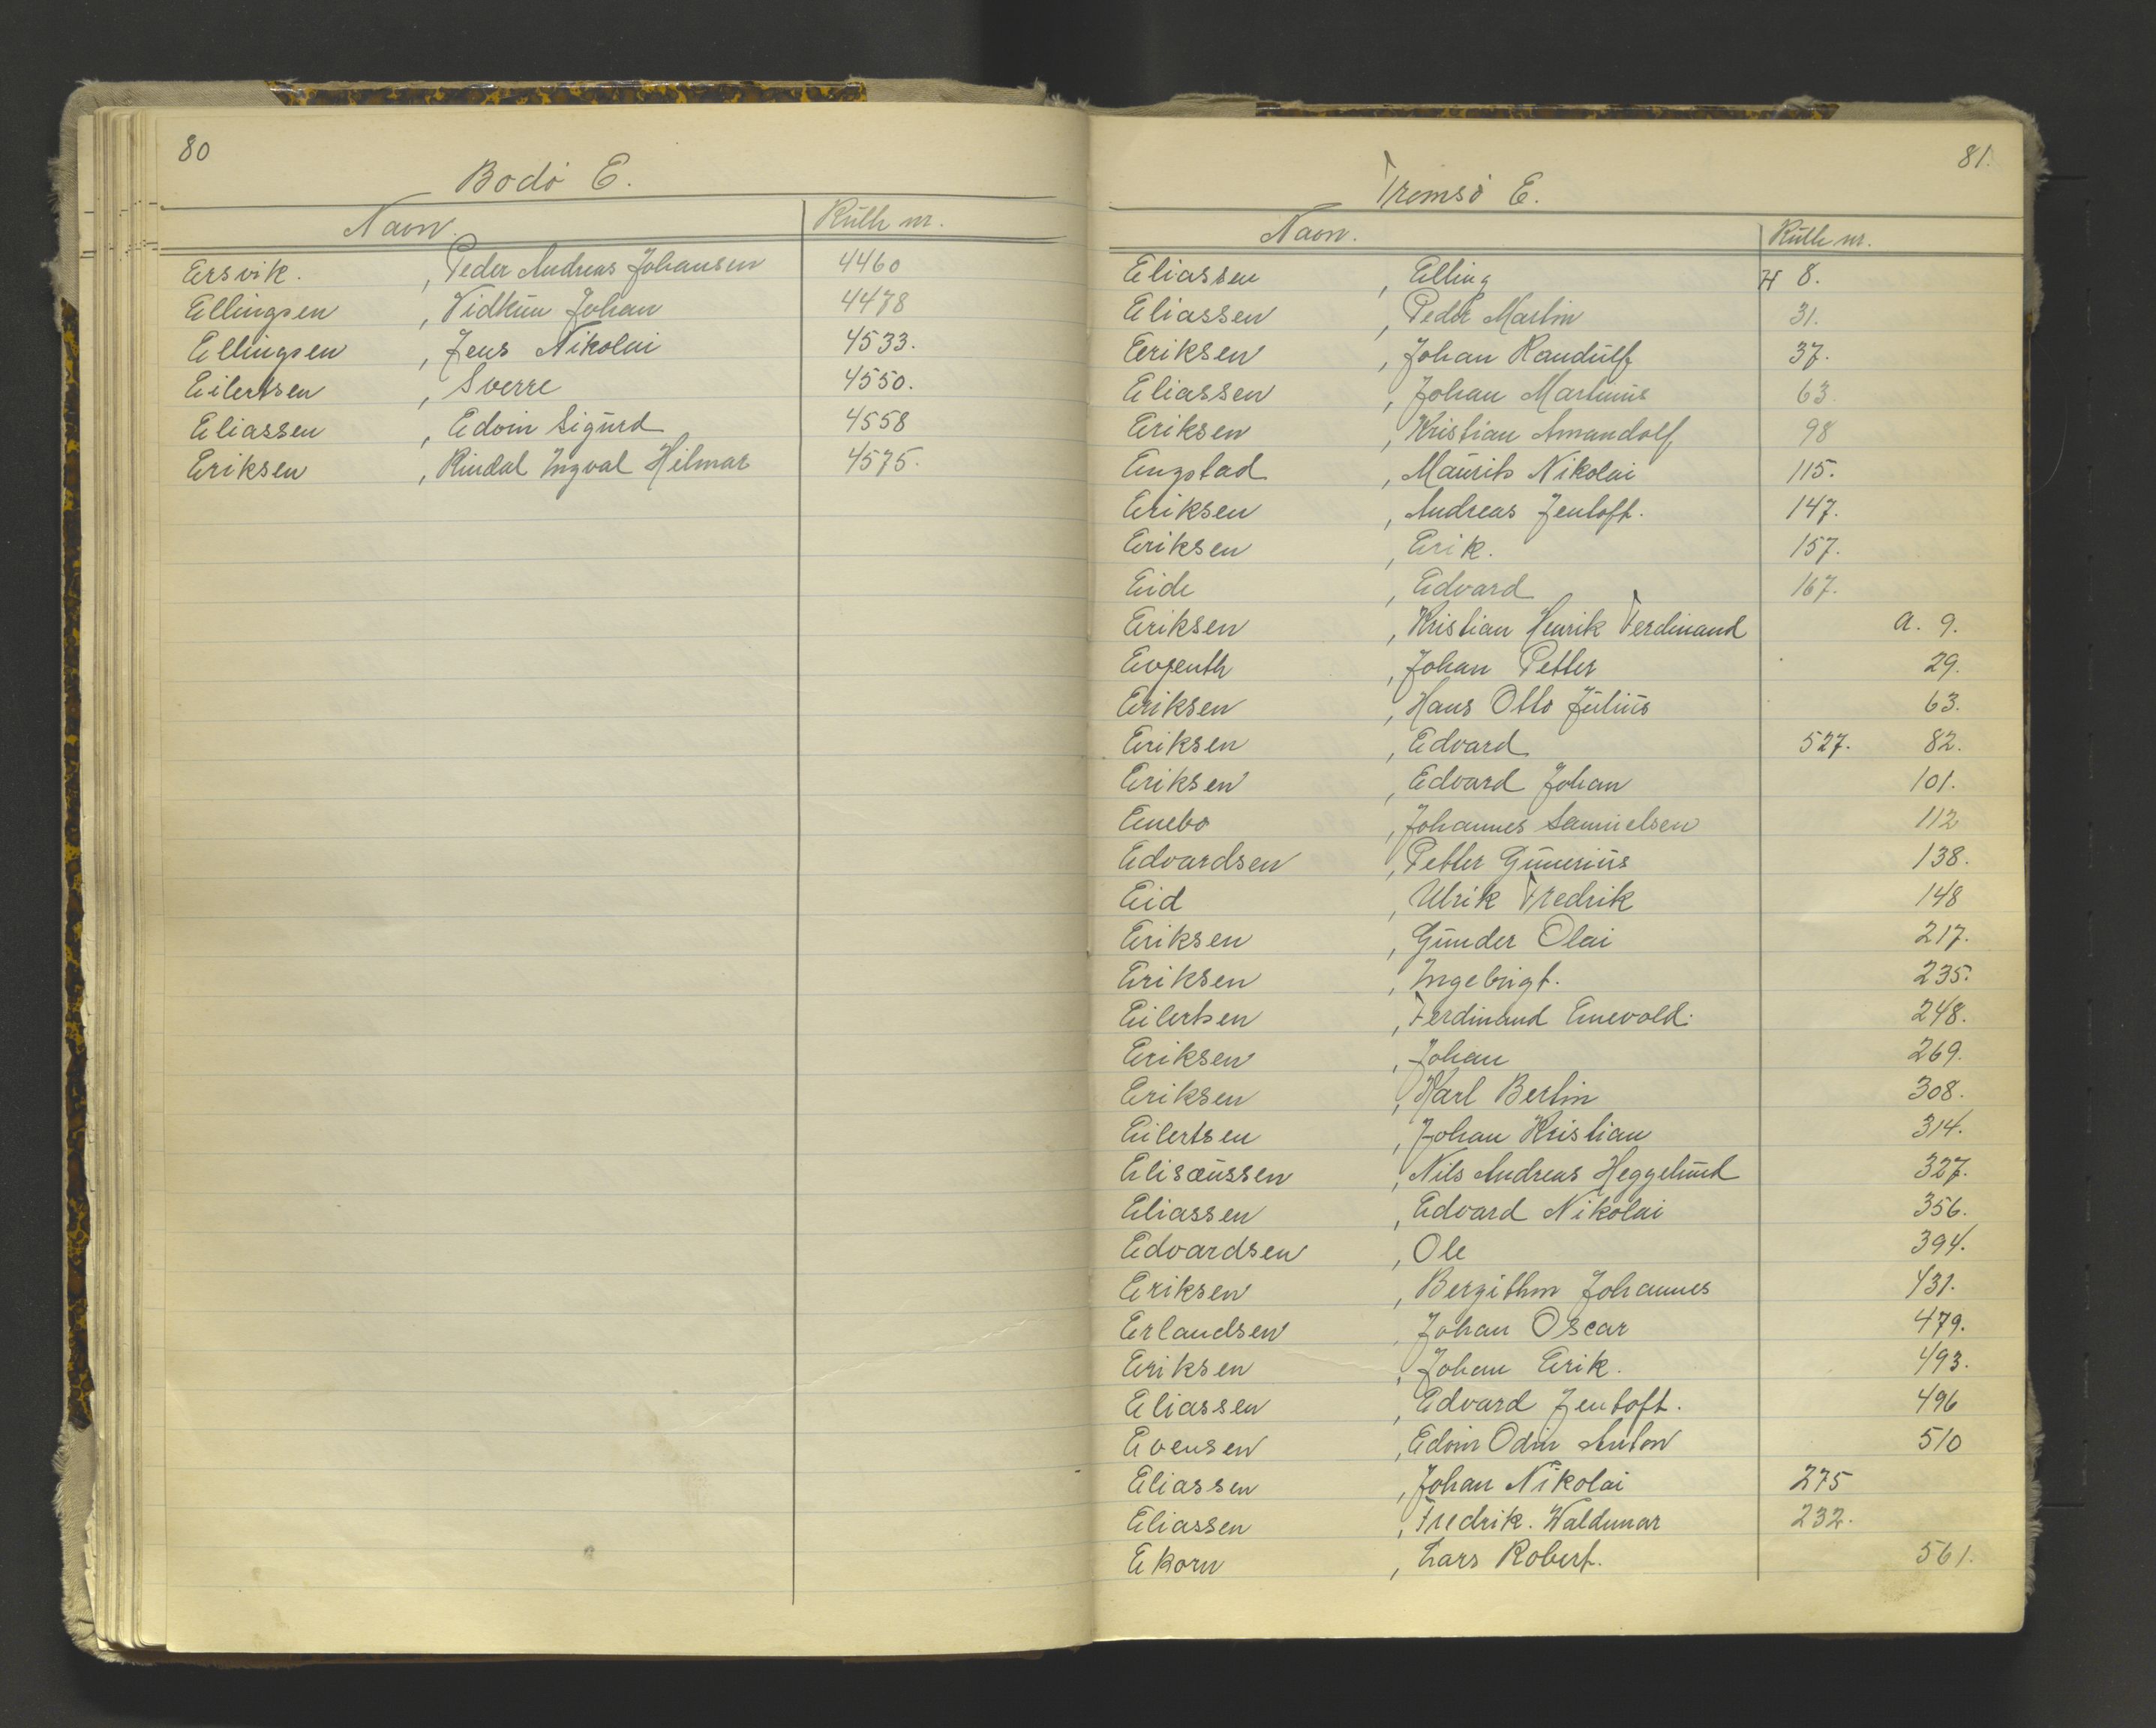 80
Bodö E.
Navn. Rulle nr.
Ersvik. , Peder Andreas Johansen 4460
Ellingsen , Vidkun Johan 4478
Ellingsen , Jens Nikolai 4533.
Eilertsen , Sverre 4550.
Eliassen , Edvin Sigurd 4558
Eriksen , Rindal Ingval Hilmar 4575.
81.
Tromsö E.
Navn. Rulle nr.
Eliassen , Elling H 8.
Eliassen , Peder Martin 31.
Eriksen , Johan Randulf 37.
Eliassen , Johan Martinus 63.
Eriksen , Kristian Amandolf 98
Engstad , Maurits Nikolai 115.
Eriksen , Andreas Jentoft. 147.
Eriksen , Erik. 157.
Eide , Edvard 167.
Eriksen , Kristian Henrik Ferdinand a. 9.
Evjenth , Johan Petter 29.
Eriksen , Hans Otto Julius 63.
Eriksen , Edvard 527. 82.
Eriksen , Edvard Johan 101.
Enebo , Johannes Samuelsen 112
Edvardsen , Petter Gunerius 138.
Eid , Ulrik Fredrik 148
Eriksen , Gunder Olai 217.
Eriksen , Ingebrigt. 235.
Eilertsen , Ferdinand Enevold. 248.
Eriksen , Johan 269.
Eriksen , Karl Bertin 308.
Eilertsen , Johan Kristian 314.
Elisæussen , Nils Andreas Heggelund 327.
Eliassen , Edvard Nikolai 356.
Edvardsen , Ole 394.
Eriksen , Bergithon Johannes 431.
Erlandsen , Johan Oscar 479.
Eriksen , Johan Erik. 493.
Eliassen , Edvard Jentoft. 496
Evensen , Edvin Odin Anton 510
Eliassen , Johan Nikolai 275
Eliassen , Fredrik. Waldemar 232.
Ekorn , Lars Robert. 561.